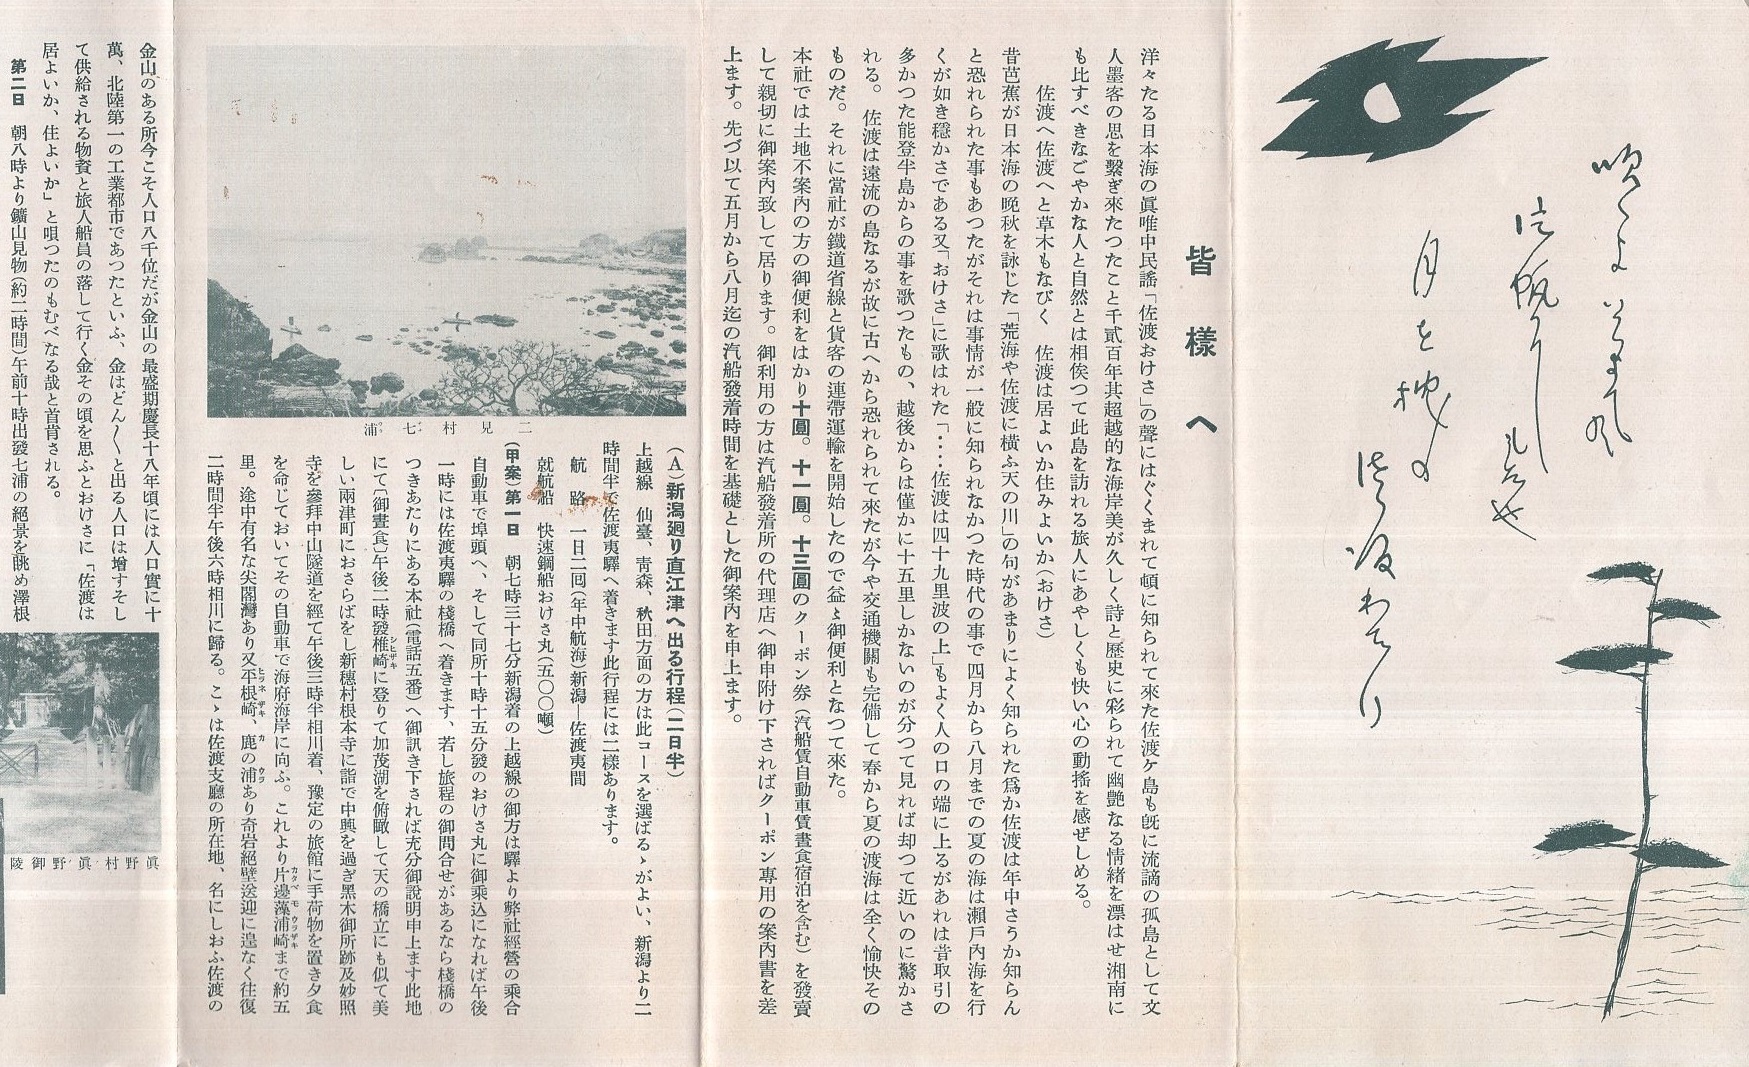 皆樣へ
洋々たる日本海の眞唯中民謠「佐渡おけさ」の聲にはぐくまれて頓に知られて來た佐渡ケ島も旣に流謫の孤島として文
人墨客の思を繫ぎ來たつたこと千貳百年其超越的な海岸美が久しく詩と歷史に彩られて幽艷なる情緖を漂はせ湘南に
も比すべきなごやかな人と自然とは相俟つて此島を訪れる旅人にあやしくも快い心の動搖を感ぜしめる。
佐渡へ佐渡へと草木もなびく　佐渡は居よいか住みよいか(おけさ)
昔芭蕉が日本海の晚秋を詠じた「荒海や佐渡に橫ふ天の川」の句があまりによく知られた爲か佐渡は年中さうか知らん
と恐れられた事もあつたがそれは事情が一般に知られなかつた時代の事で四月から八月までの夏の海は瀨戶內海を行
くが如き穩かさである又「おけさ」に歌はれた「‥‥佐渡は四十九里波の上」もよく人の口の端に上るがあれは昔取引の
多かつた能登半島からの事を歌つたもの、越後からは僅かに十五里しかないのが分つて見れば却つて近いのに驚かさ
れる。佐渡は遠流の島なるが故に古へから恐れられて來たが今や交通機關も完備して春から夏の渡海は全く愉快その
ものだ。それに當社が鐵道省線と貨客の連帶運輸を開始したので益〻御便利となつて來た。
本社では土地不案內の方の御便利をはかり十圓。十一圓。十三圓のクーポン券(汽船賃自動車賃晝食宿泊を含む)を發賣
して親切に御案內致して居ります。御利用の方は汽船發着所の代理店へ御申附け下さればクーポン專用の案內書を差
上ます。先づ以て五月から八月迄の汽船發着時間を基礎とした御案內を申上ます。
二見村七浦
(A)新潟廻り直江津へ出る行程(二日半)
上越線　仙臺、靑森、秋田方面の方は此コースを選ばるゝがよい、新潟より二
時間半で佐渡夷驛へ着きます此行程には二樣あります。
航路　一日二回(年中航海)新潟―佐渡夷間
就航船　快速鋼船おけさ丸(五〇〇噸)
(甲案)第一日　朝七時三十七分新潟着の上越線の御方は驛より弊社經營の乘合
自動車で埠頭へ、そして同所十時十五分發のおけさ丸に御乘込になれば午後
一時には佐渡夷驛の棧橋へ着きます、若し旅程の御問合せがあるなら棧橋の
つきあたりにある本社(電話五番)へ御訊き下されば充分御說明申上ます此地
にて〔御晝食〕午後二時發椎崎に登りて加茂湖を俯瞰して天の橋立にも似て美
しい兩津町におさらばをし新穗村根本寺に詣で中興を過ぎ黑木御所跡及妙照
寺を參拜中山隧道を經て午後三時半相川着、豫定の旅館に手荷物を置き夕食
を命じておいてその自動車で海府海岸に向ふ。これより片邊藻浦崎まで約五
里。途中有名な尖閣灣あり又平根崎、鹿の浦あり奇岩絕壁送迎に遑なく往復
二時間半午後六時相川に歸る。こゝは佐渡支廳の所在地、名にしおふ佐渡の
金山のある所今こそ人口八千位だが金山の最盛期慶長十八年頃には人口實に十
萬、北陸第一の工業都市であつたといふ、金はどん〱と出る人口は增すそし
て供給される物資と旅人船員の落して行く金その頃を思ふとおけさに「佐渡は
居よいか、住よいか」と唄つたのもむべなる哉と首肯される。
第二日　朝八時より鑛山見物(約二時間)午前十時出發七浦の絕景を眺め澤根
眞野村・眞野御陵